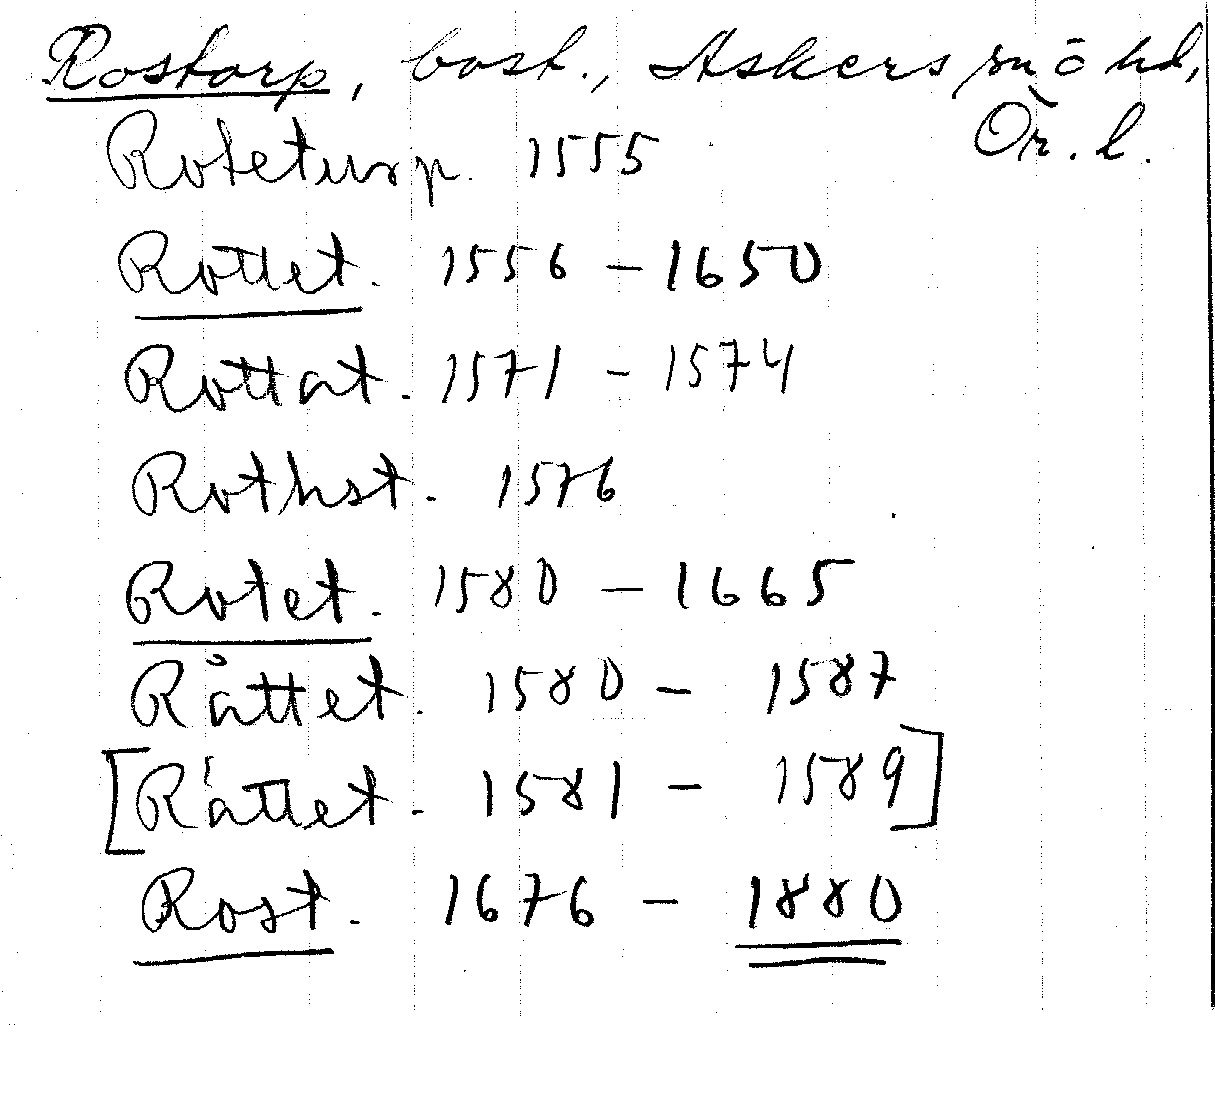 Rostorp, bost., Askers sn ö hd,
Ör. l.
Roteturp. 1555
Rottet. 1556 - 1650
Rottat. 1571 - 1574
Rothst. 1576
Rotet. 1580 - 1665
Råttet. 1580 - 1587
[Råttet. 1581 - 1589]
Rost. 1676 - 1880